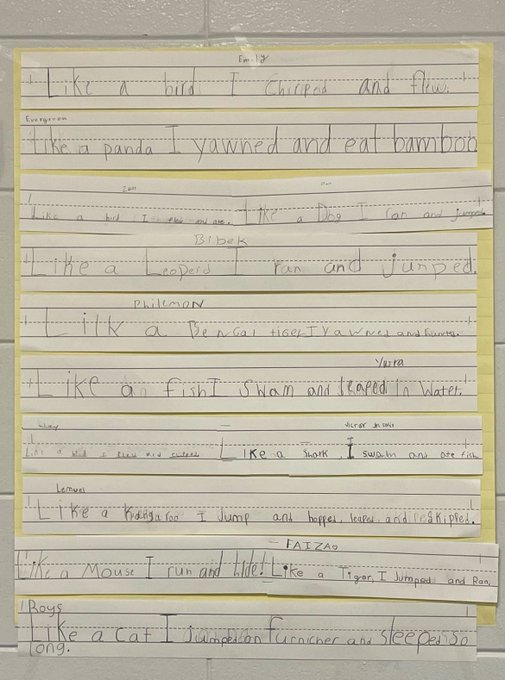 Emily
Like a bird I Chirped and flew.
Evergreen
Like a panda I yawned and eat bamboo
Like a bird I and
Like a Dog I ran and jumped
Bibek
Like a Leoperd I ran and jumped.
Philemon
Lilk a Bengal tiger I yawned and
Yusra
Like an fish I Swam and leaped in Water.
Like a I flew and
Victor
Like a Shark, I swam and ate fish
Lemuel
Like a Kangaroo I Jump and hopped, leaped, and skipped.
FAIZAO
Like a Mouse I run and hide! Like a Tiger, I Jumped and Ran.
Roys
Like a Cat I jumped on furnicher and sleeped so
long.